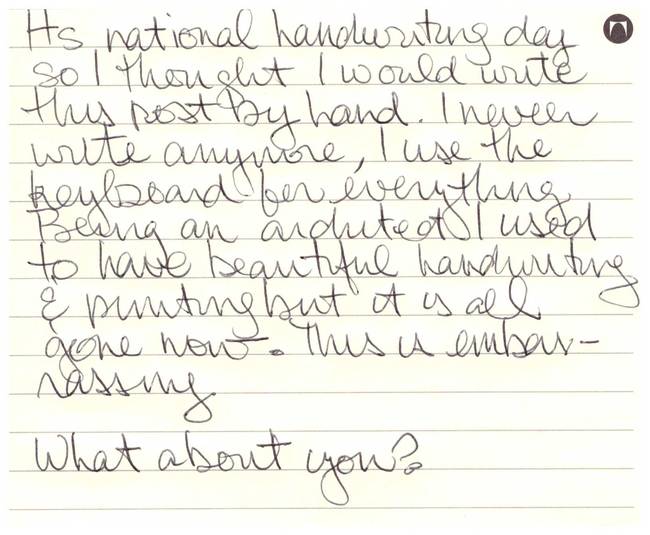 Its national handwriting day
so I thought I would write
this post by hand. I never
write anymore, I use the
keyboard for everything.
Being an architect I used
to have beautiful handwriting
& printing but it is all
gone now. This is embar-
rassing
What about you?